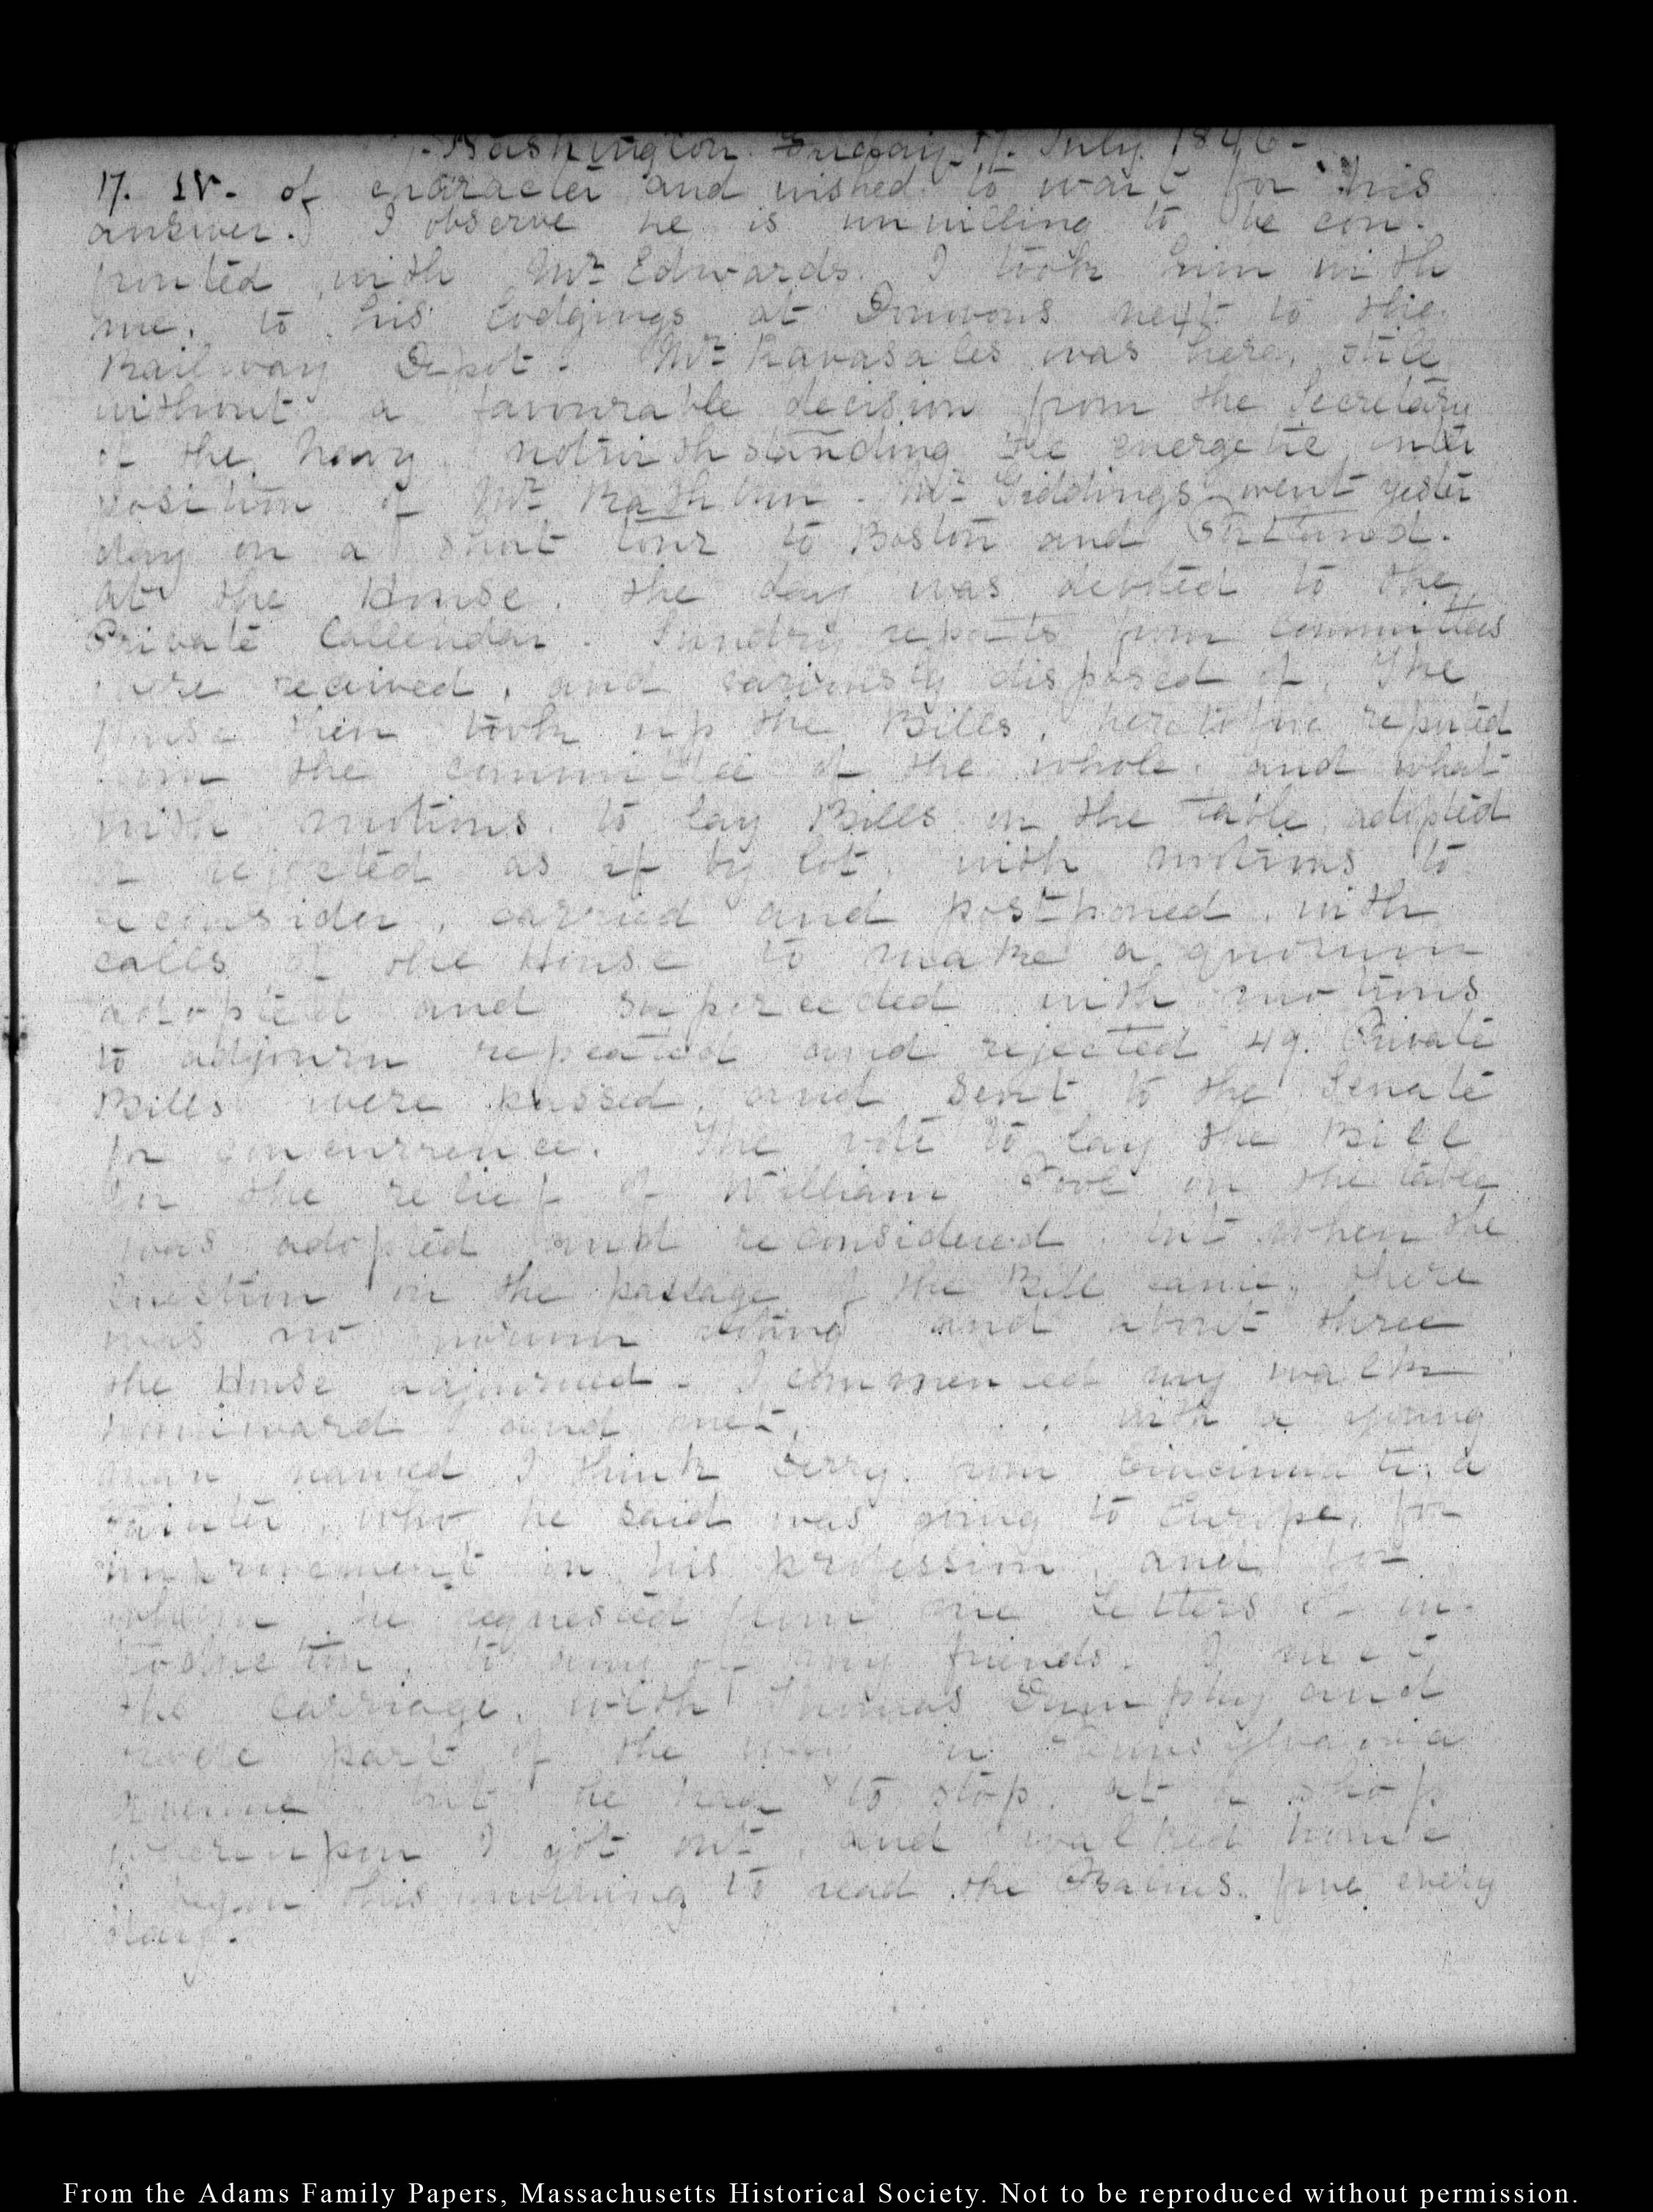 Washington Friday 17. July 1846-
17. IV. of character and wished to wait for his
answer. I observe he is unwilling to be con-
fronted with Mr Edwards. I took him with
me, to his lodgings at next to the
Railway Depot. Mr was here, still
without a favourable decision from the Secretary
of the Navy notwithstanding the energetic inter
position of Mr Rathbun. Mr Giddings went yester
day on a short tour to Boston and
At the House. the day was devoted to the
Private Callendar. Sundry reports from Committees
were received, and variously disposed of. The
House then took up the Bills, heretofore reported
from the committee of the whole, and what
with motions to lay Bills on the table adopted
or rejected as if by lot, with motions to
reconsider, carried and postponed, with
calls of the House to make a quorum
adopted and superceded with motions
to adjourn repeated and rejected 49. Private
Bills were passed, and sent to the Senate
for concurrence. The vote to lay the Bill
for the relief of William on the table
was adopted and reconsidered. but when the
question on the passage of the Bill came, there
was no quorum voting and about three
the House adjourned. I commenced my walk
homeward and met, with a young
man named I think from Cincinnati, a
Painter, who he said was going to Europe, for
improvement in his profession, and for
whom he requested from me Letters of in-
troduction, to any of my friends. I met
the carriage, with Thomas and
rode part of the way in Pennsylvania
Avenue but he had to stop, at a shop
whereupon I got out, and walked home
I began this morning to read the Psalms. five every
day.
From the Adams Family Papers, Massachusetts Historical Society. Not to be reproduced without permission.